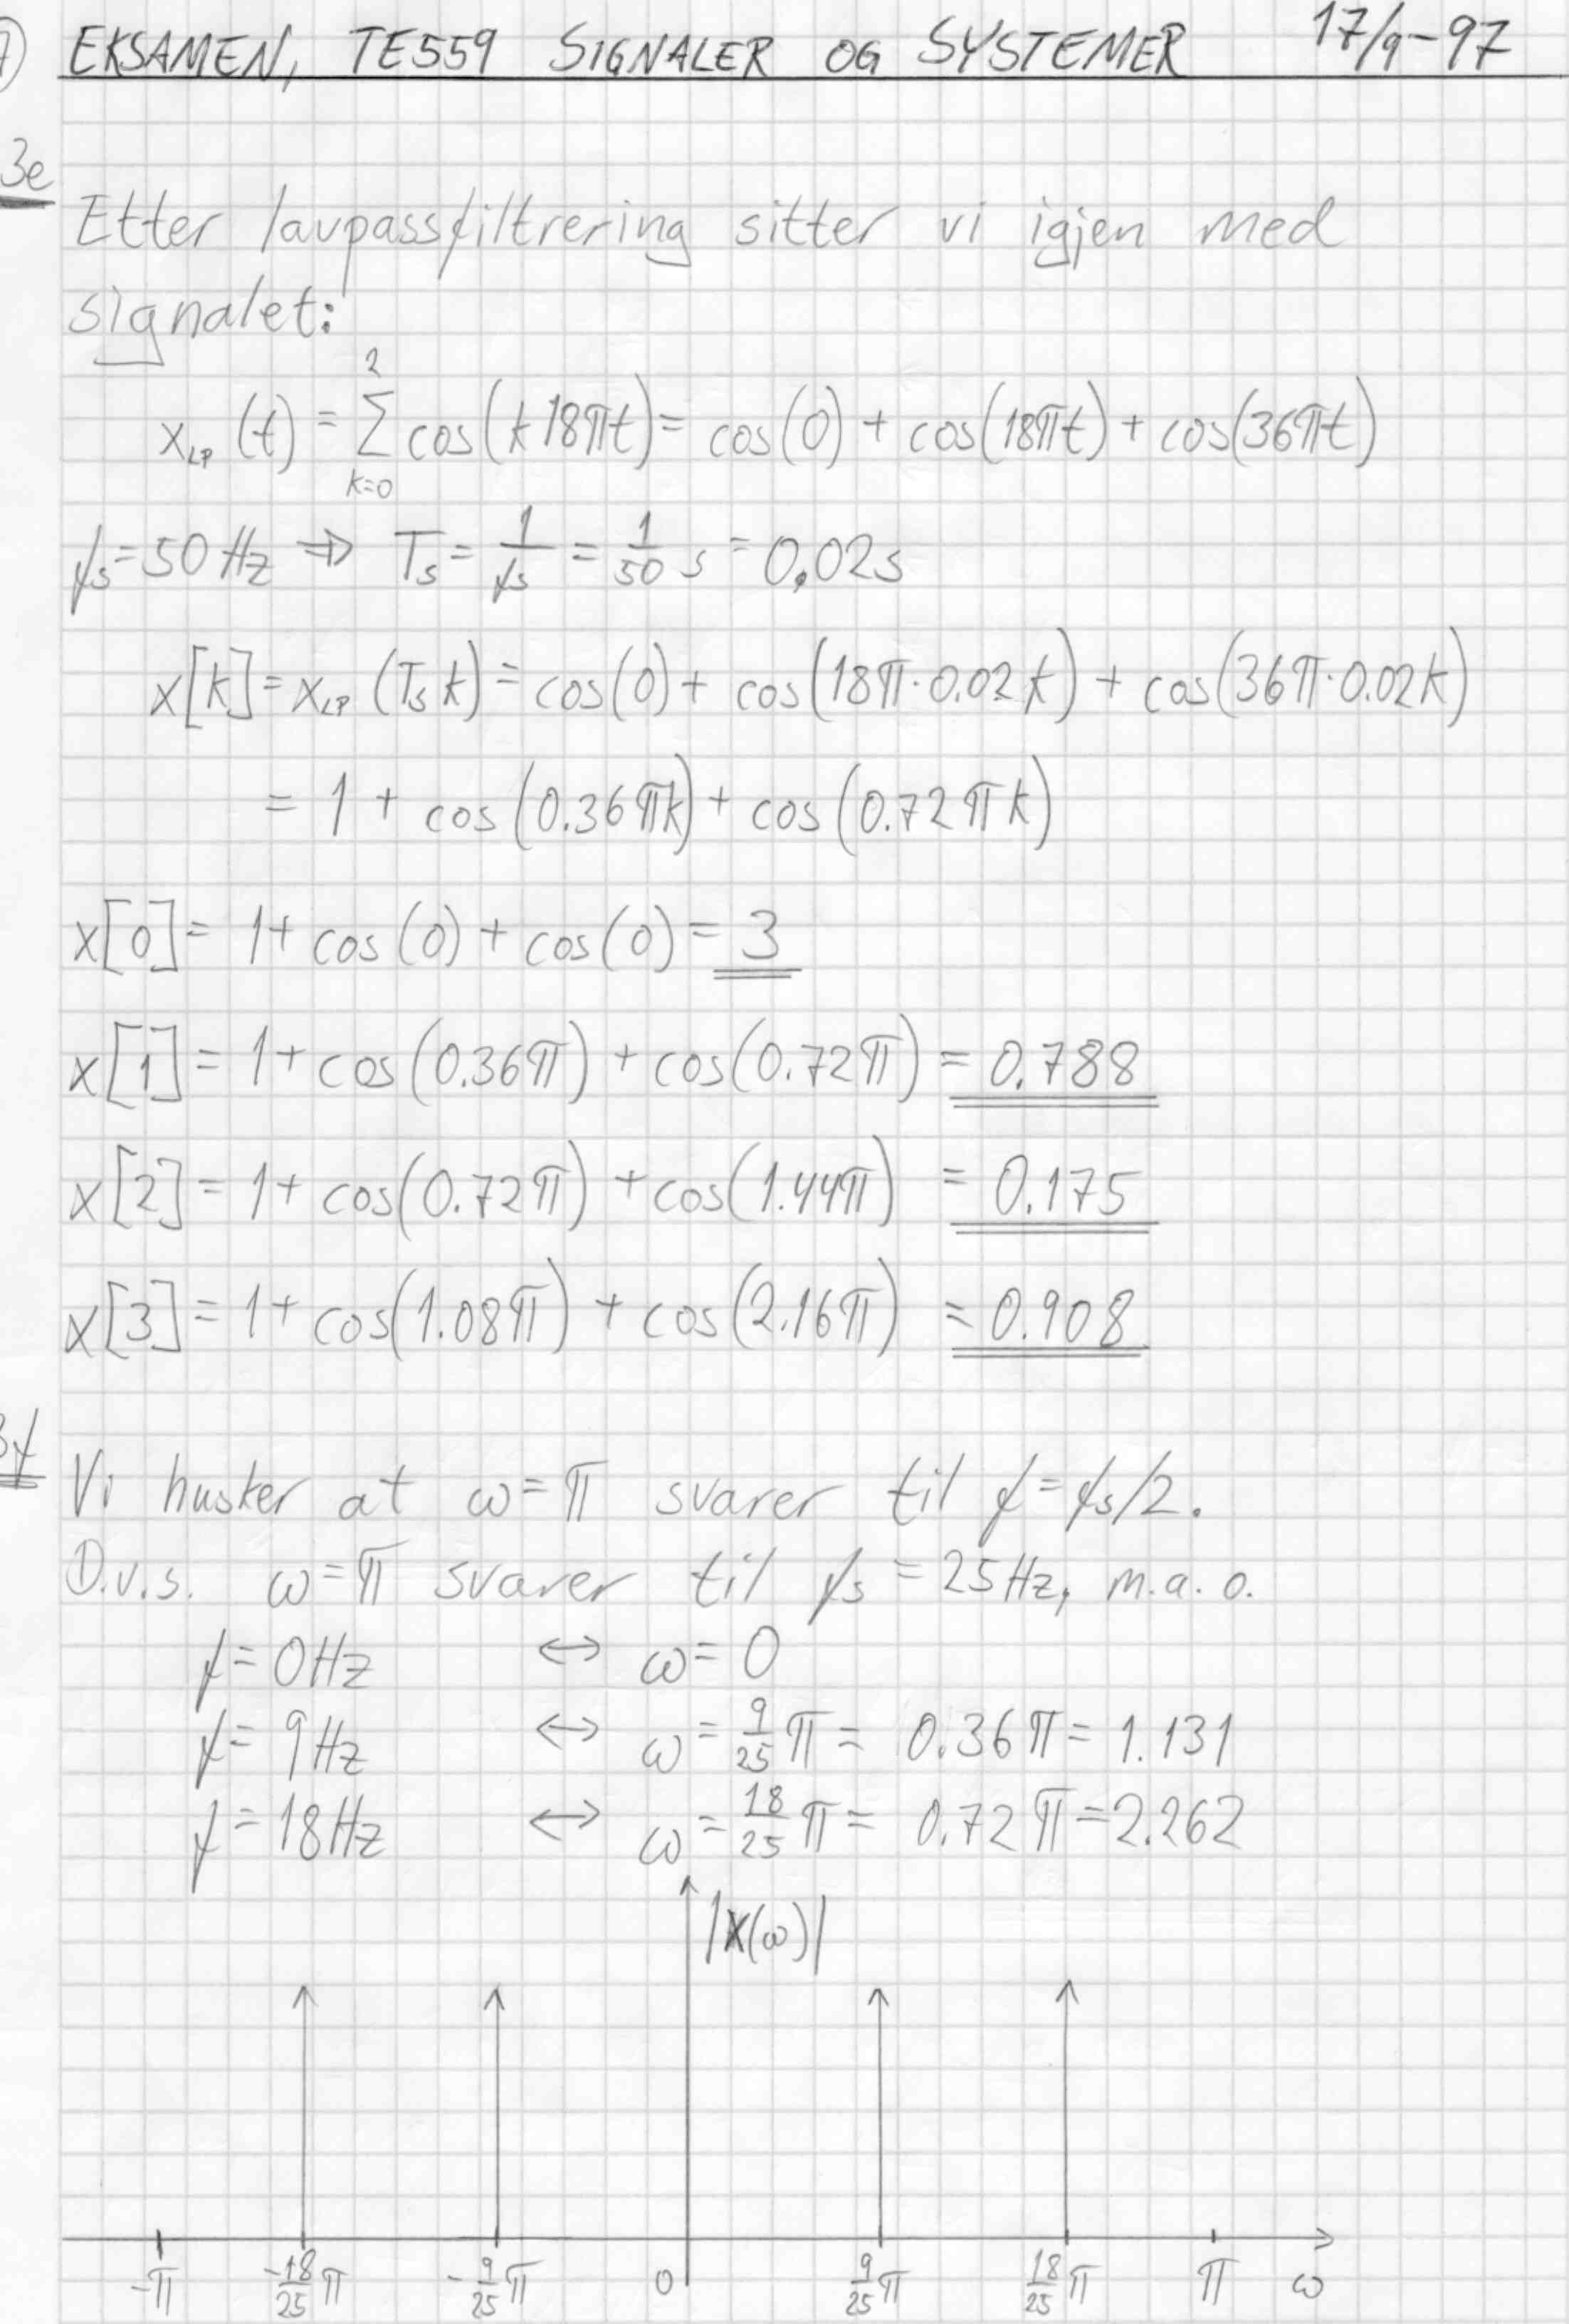 EKSAMEN, TE559 SIGNALER OG SYSTEMER 17/9-97
3e
Etter lavpassfiltrering sitter vi igjen med
signalet:
x_LP(t) = Σ_{k=0}^{2} cos(k18πt) = cos(0) + cos(18πt) + cos(36πt)
fs = 50Hz ⇒ Ts = 1/fs = 1/50 s = 0,02s
x[k] = x_LP(Ts k) = cos(0) + cos(18π·0.02k) + cos(36π·0.02k)
= 1 + cos(0.36πk) + cos(0.72πk)
x[0] = 1 + cos(0) + cos(0) = 3
x[1] = 1 + cos(0.36π) + cos(0.72π) = 0.788
x[2] = 1 + cos(0.72π) + cos(1.44π) = 0.175
x[3] = 1 + cos(1.08π) + cos(2.16π) = 0.908
3f
Vi husker at ω = π svarer til f = fs/2.
D.v.s. ω = π svarer til fs = 25Hz, m.a.o.
f = 0Hz ↔ ω = 0
f = 9Hz ↔ ω = 9/25 π = 0.36π = 1.131
f = 18Hz ↔ ω = 18/25 π = 0.72π = 2.262
|X(ω)|
-π -18/25 π -9/25 π 0 9/25 π 18/25 π π ω